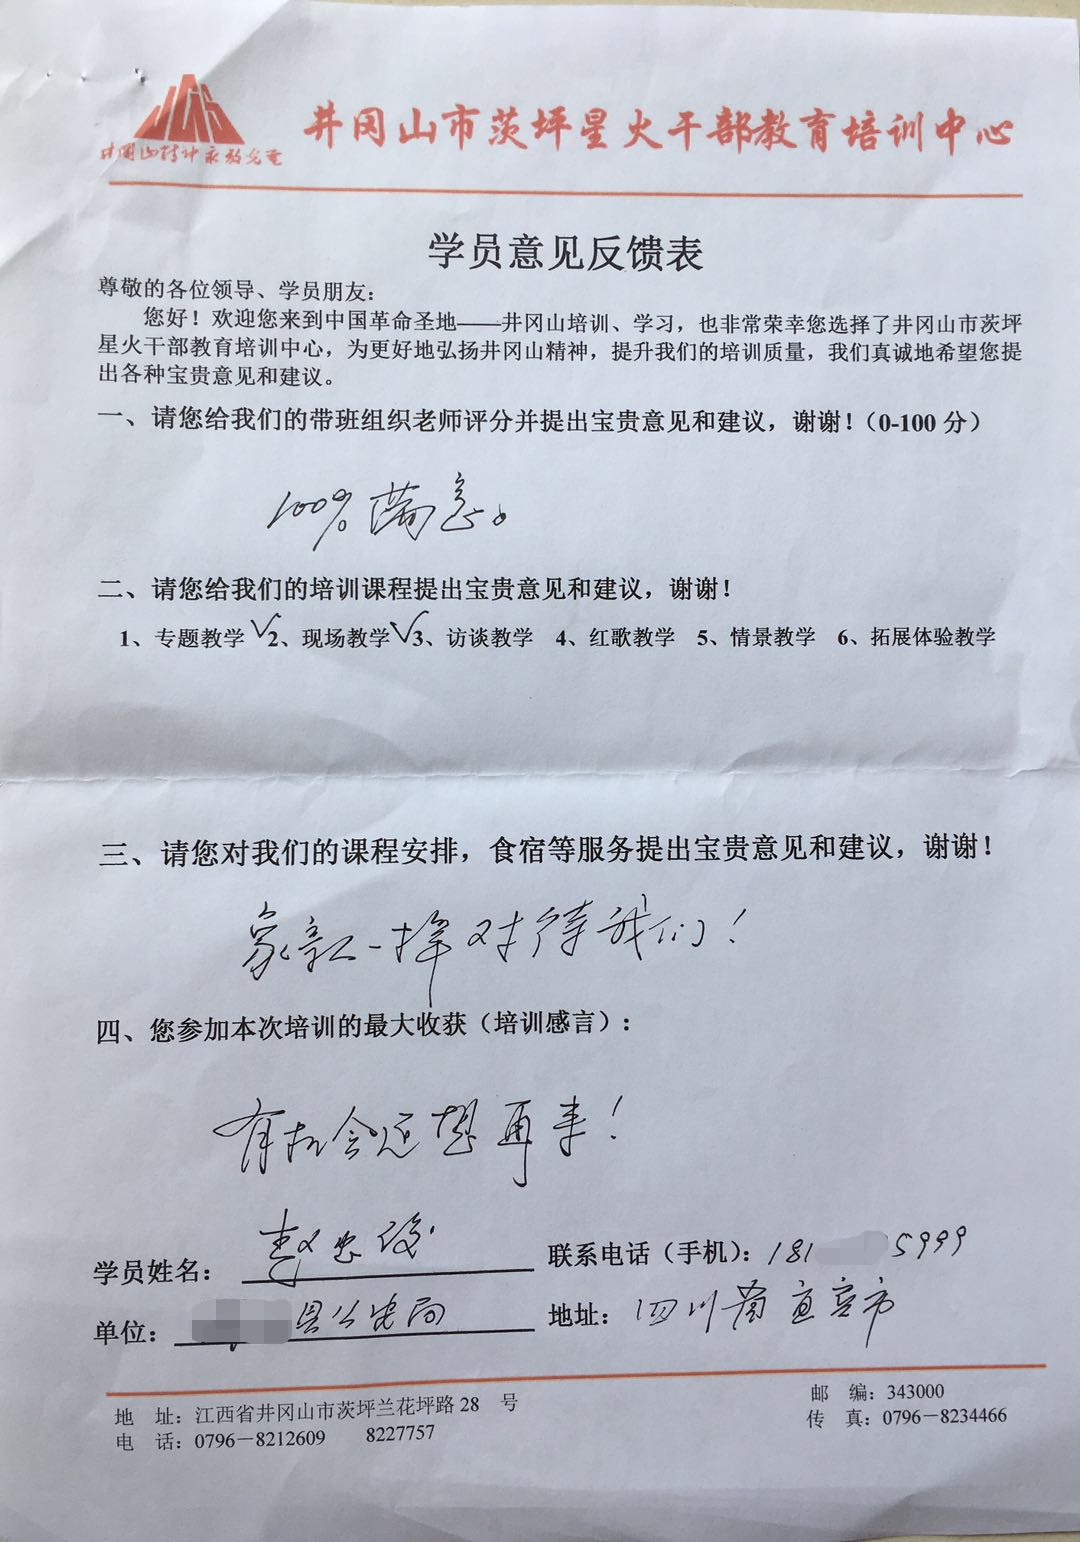 井冈山精神永放光芒
井冈山市茨坪星火干部教育培训中心
学员意见反馈表
尊敬的各位领导、学员朋友：
您好！欢迎您来到中国革命圣地——井冈山培训、学习，也非常荣幸您选择了井冈山市茨坪
星火干部教育培训中心，为更好地弘扬井冈山精神，提升我们的培训质量，我们真诚地希望您提
出各种宝贵意见和建议。
一、请您给我们的带班组织老师评分并提出宝贵意见和建议，谢谢！（0-100 分）
100% 满意。
二、请您给我们的培训课程提出宝贵意见和建议，谢谢！
1、专题教学 √ 2、现场教学 √ 3、访谈教学 4、红歌教学 5、情景教学 6、拓展体验教学
三、请您对我们的课程安排，食宿等服务提出宝贵意见和建议，谢谢！
象亲人一样对待我们！
四、您参加本次培训的最大收获（培训感言）：
有机会还想再来！
学员姓名： 赵 联系电话（手机）：181 5999
单位： 县公安局 地址：四川省宜宾市
地 址：江西省井冈山市茨坪兰花坪路 28 号 邮 编：343000
电 话：0796－8212609 8227757 传 真：0796－8234466